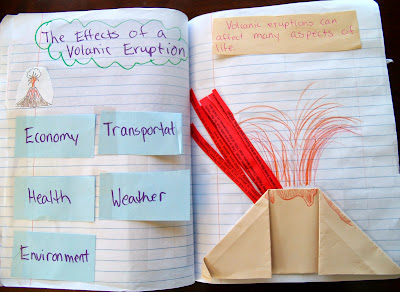 The Effects of a
Volanic Eruption
Economy
Transportat
Health
Weather
Environment
Volcanic eruptions can
affect many aspects of
life.